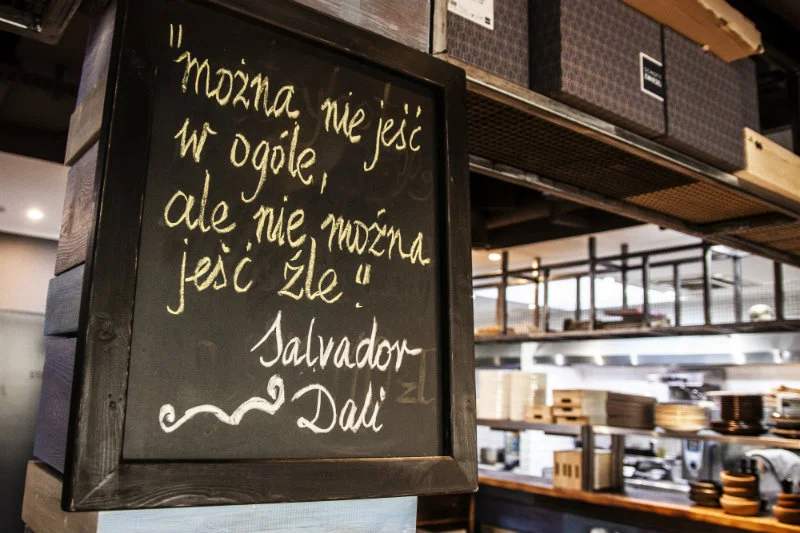 "można nie jeść
w ogóle,
ale nie można
jeść źle"
Salvador
Dali